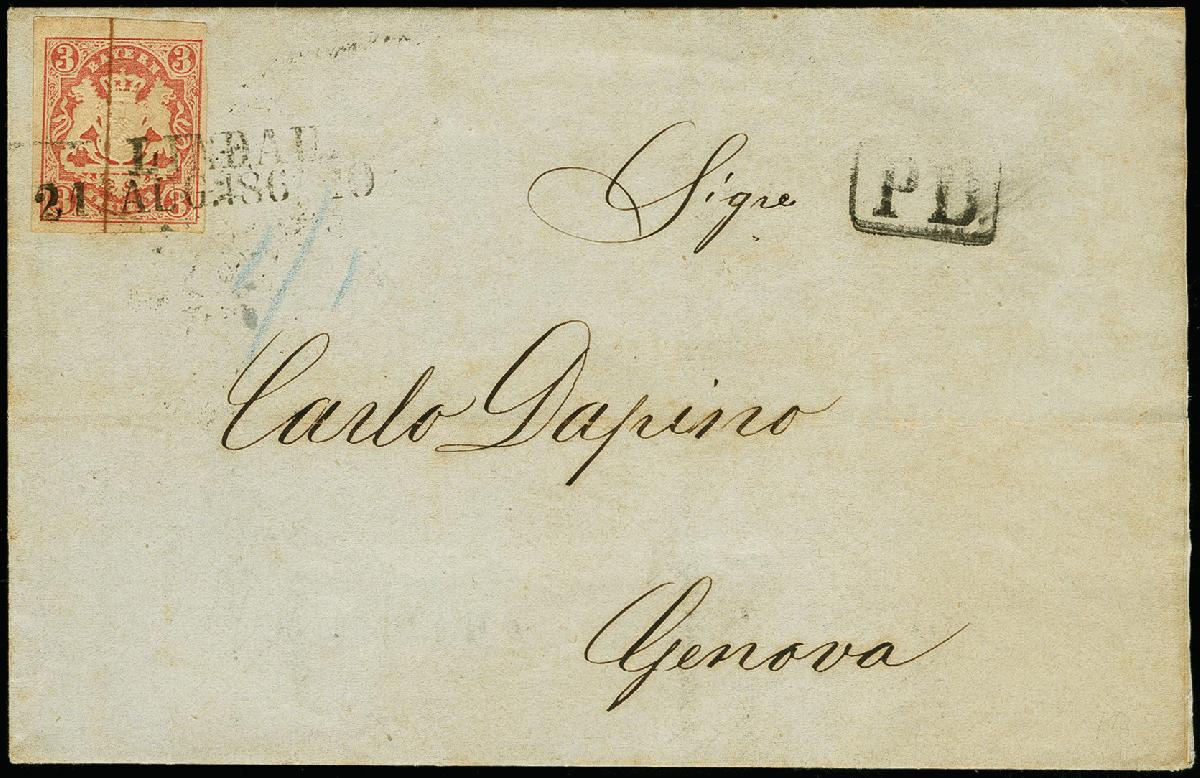 3 BAYERN 3
LINDAU
21 AUG. 186 10
3 3
Sigre
P.D.
Carlo Dapino
Genova